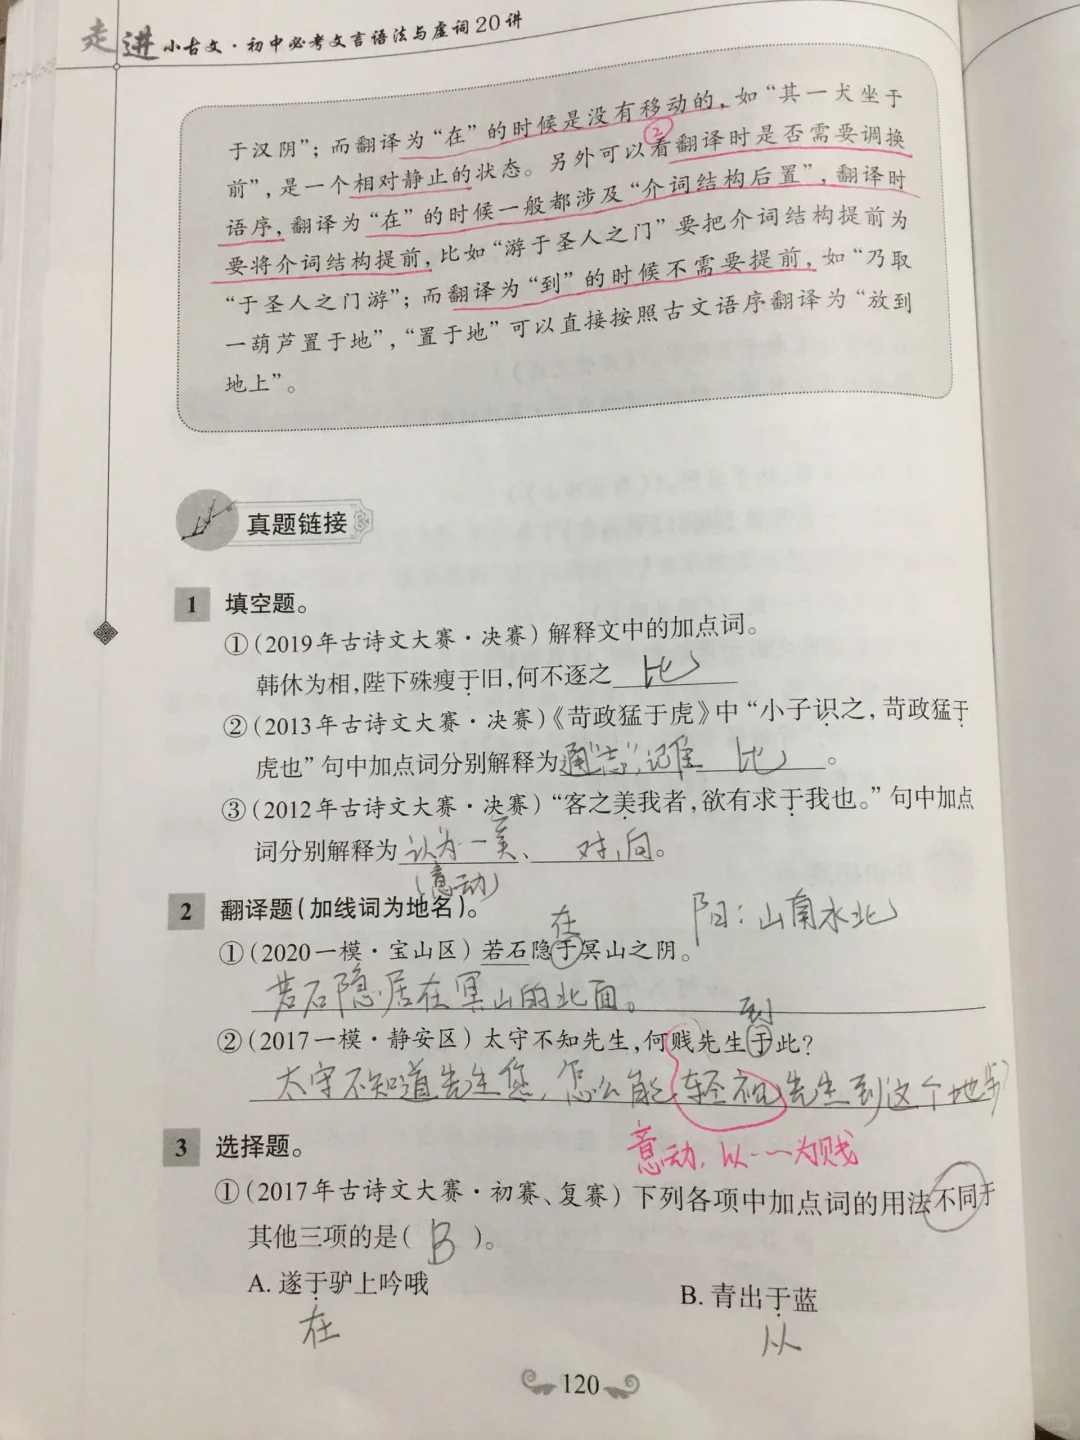 走进小古文·初中必考文言语法与虚词20讲
于汉阴”；而翻译为“在”的时候是没有移动的，如“其一犬坐于
前”，是一个相对静止的状态。另外可以②看翻译时是否需要调换
语序，翻译为“在”的时候一般都涉及“介词结构后置”，翻译时
要将介词结构提前，比如“游于圣人之门”要把介词结构提前为
“于圣人之门游”；而翻译为“到”的时候不需要提前，如“乃取
一葫芦置于地”，“置于地”可以直接按照古文语序翻译为“放到
地上”。
真题链接
1 填空题。
①（2019年古诗文大赛·决赛）解释文中的加点词。
韩休为相，陛下殊瘦于旧，何不逐之 比
②（2013年古诗文大赛·决赛）《苛政猛于虎》中“小子识之，苛政猛于
虎也”句中加点词分别解释为通“志”，记住 比。
③（2012年古诗文大赛·决赛）“客之美我者，欲有求于我也。”句中加点
词分别解释为 认为…美、 对，向。
（意动）
2 翻译题（加线词为地名）。
阳：山南水北
在
①（2020一模·宝山区）若石隐于冥山之阴。
若石隐居在冥山的北面。
到
②（2017一模·静安区）太守不知先生，何贱先生于此？
太守不知道先生您，怎么能轻视先生到这个地步
意动，以……为贱
3 选择题。
①（2017年古诗文大赛·初赛、复赛）下列各项中加点词的用法不同于
其他三项的是（ B ）。
A. 遂于驴上吟哦 B. 青出于蓝
在 从
120